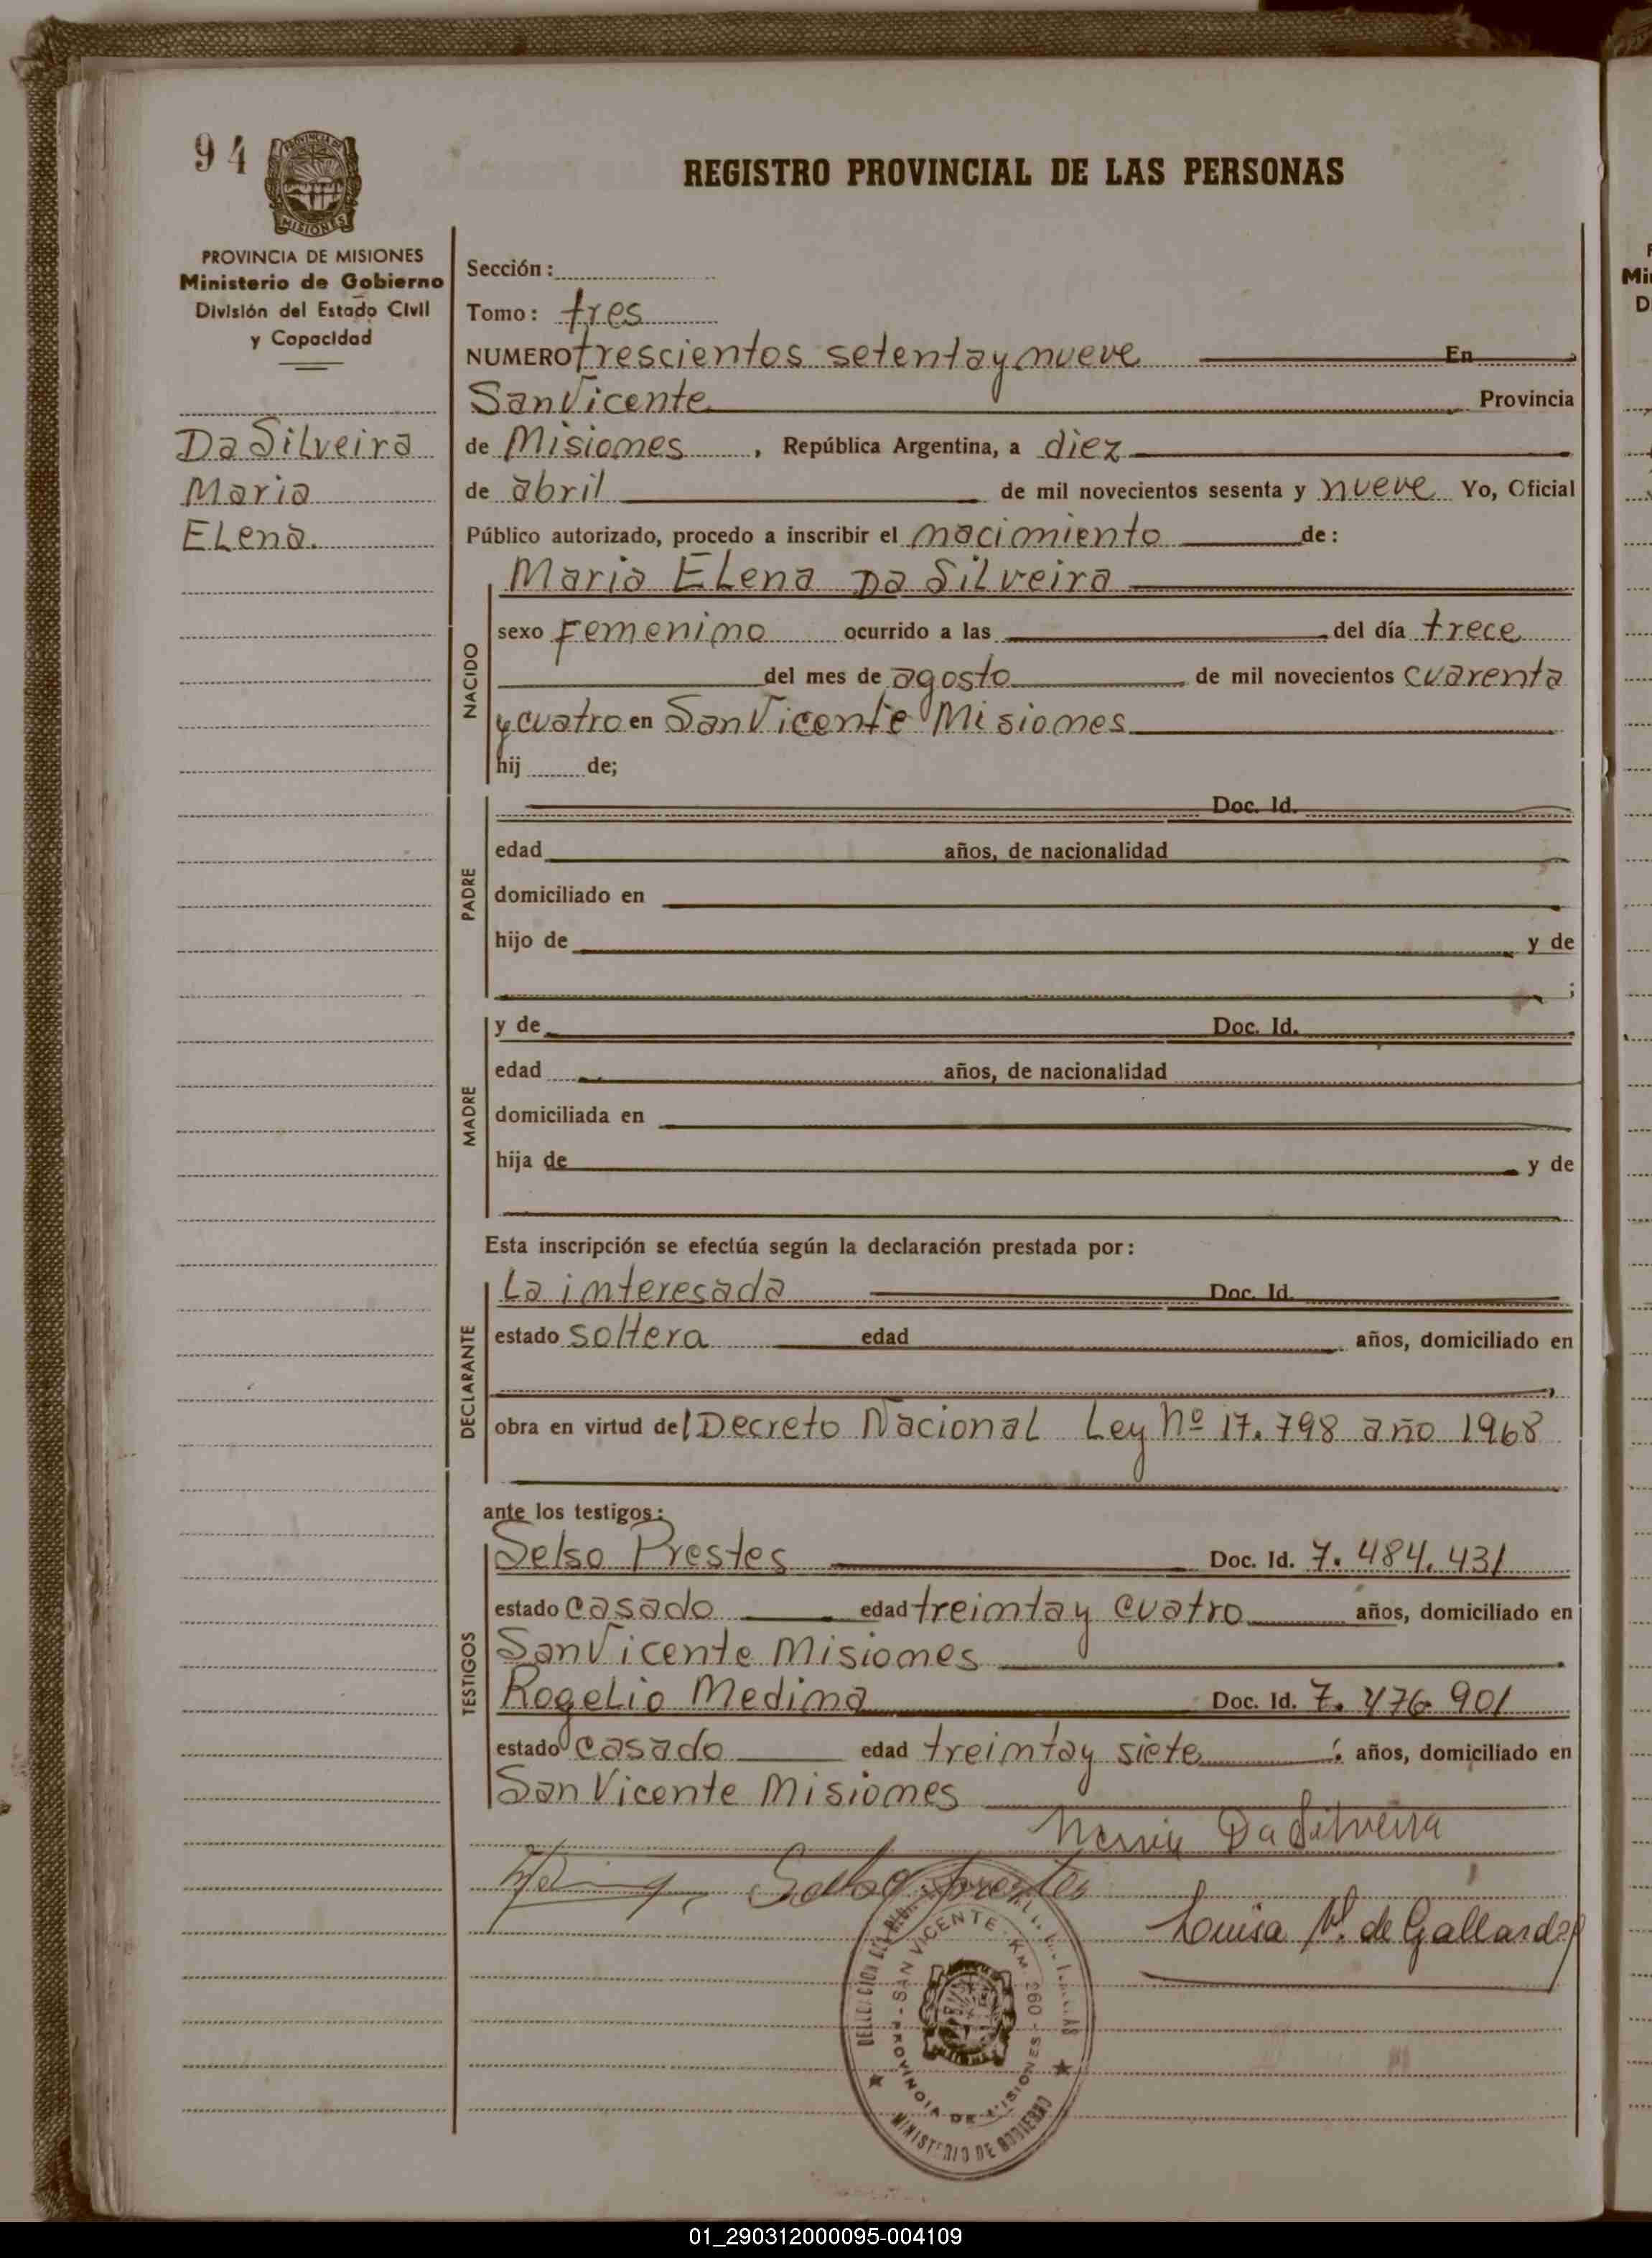 94
PROVINCIA DE MISIONES
Ministerio de Gobierno
División del Estado Civil
y Capacidad
Da Silveira
Maria
Elena.
REGISTRO PROVINCIAL DE LAS PERSONAS
Sección:
Tomo: tres
NUMERO trescientos setenta y nueve En
San Vicente Provincia
de Misiones, República Argentina, a diez
de abril de mil novecientos sesenta y nueve Yo, Oficial
Público autorizado, procedo a inscribir el nacimiento de:
Maria Elena Da Silveira
NACIDO
sexo Femenino ocurrido a las del día trece
del mes de agosto de mil novecientos cuarenta
y cuatro en San Vicente Misiones
hij de;
PADRE
Doc. Id.
edad años, de nacionalidad
domiciliado en
hijo de y de
;
MADRE
y de Doc. Id.
edad años, de nacionalidad
domiciliada en
hija de y de
Esta inscripción se efectúa según la declaración prestada por:
DECLARANTE
La interesada Doc. Id.
estado soltera edad años, domiciliado en
obra en virtud del Decreto Nacional Ley Nº 17.798 año 1968
ante los testigos:
TESTIGOS
Selso Prestes Doc. Id. 7.484.431
estado casado edad treinta y cuatro años, domiciliado en
San Vicente Misiones
Rogelio Medina Doc. Id. 7.476.901
estado casado edad treinta y siete años, domiciliado en
San Vicente Misiones
Da Silveira
Selso Prestes
Luisa de Gallardo
SAN VICENTE - KM. 260 - MISIONES
PROVINCIA DE MISIONES
MINISTERIO DE GOBIERNO
01_290312000095-004109